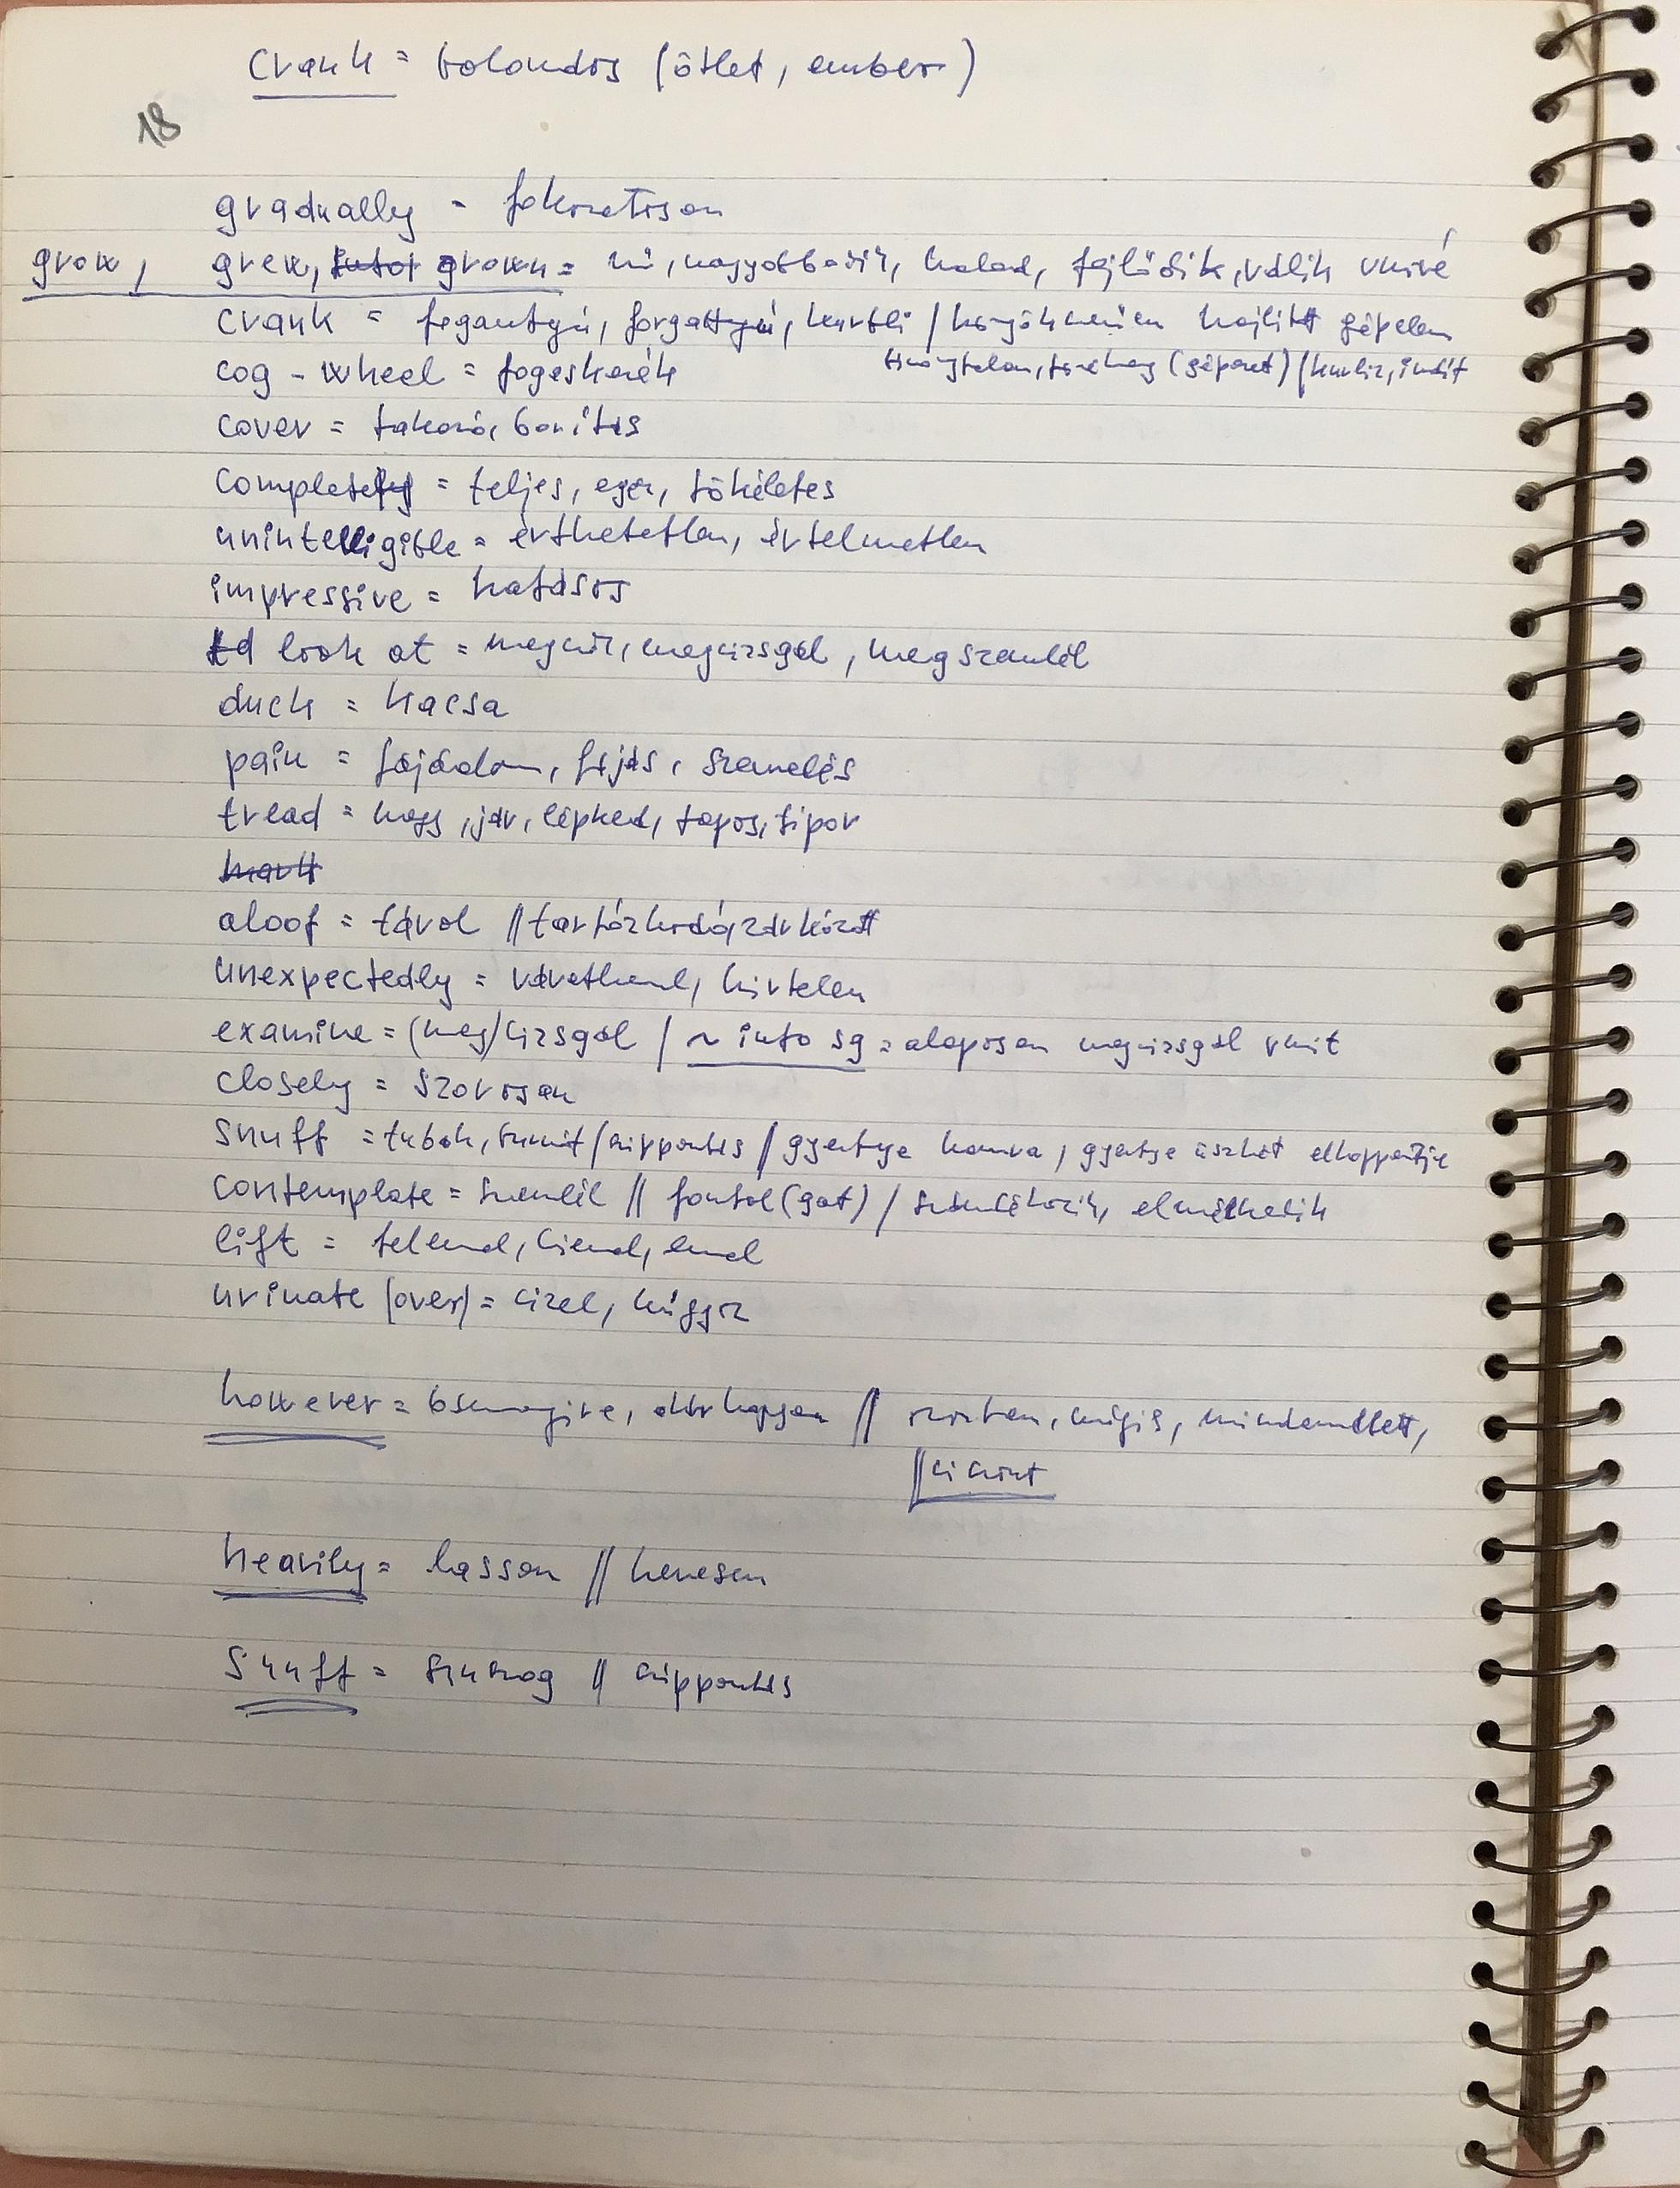 crank = bolondos (ötlet, ember)
18
gradually = fokozatosan
grow, grew, grown = nő, nagyobbodik, halad, fejlődik, válik vmivé
crank = fogantyú, forgattyú, kurbli / könyökmenően hajlított gépelem
bizonytalan, törékeny (gépezet) / kurbliz, indít
cog-wheel = fogaskerék
cover = takaró, borítás
complete = teljes, egész, tökéletes
unintelligible = érthetetlen, értelmetlen
impressive = hatásos
look at = megnéz, megvizsgál, megszemlél
duck = kacsa
pain = fájdalom, fájás, szenvedés
tread = hágy, jár, lépked, tapos, tipor
aloof = távol // tartózkodó, zárkózott
unexpectedly = váratlanul, hirtelen
examine = (meg)vizsgál / ~ into sg = alaposan megvizsgál vmit
closely = szorosan
snuff = tubák, burnót / szippantás // gyertya hamva, gyertya üszkét elkoppantja
contemplate = szemlél // fontol(gat) / szándékozik, elmélkedik
lift = felemel, kiemel, emel
urinate (over) = vizel, húgyoz
however = bármennyire, akárhogyan // azonban, mégis, mindamellett,
// viszont
heavily = lassan // hevesen
snuff = szuszog // szippantás